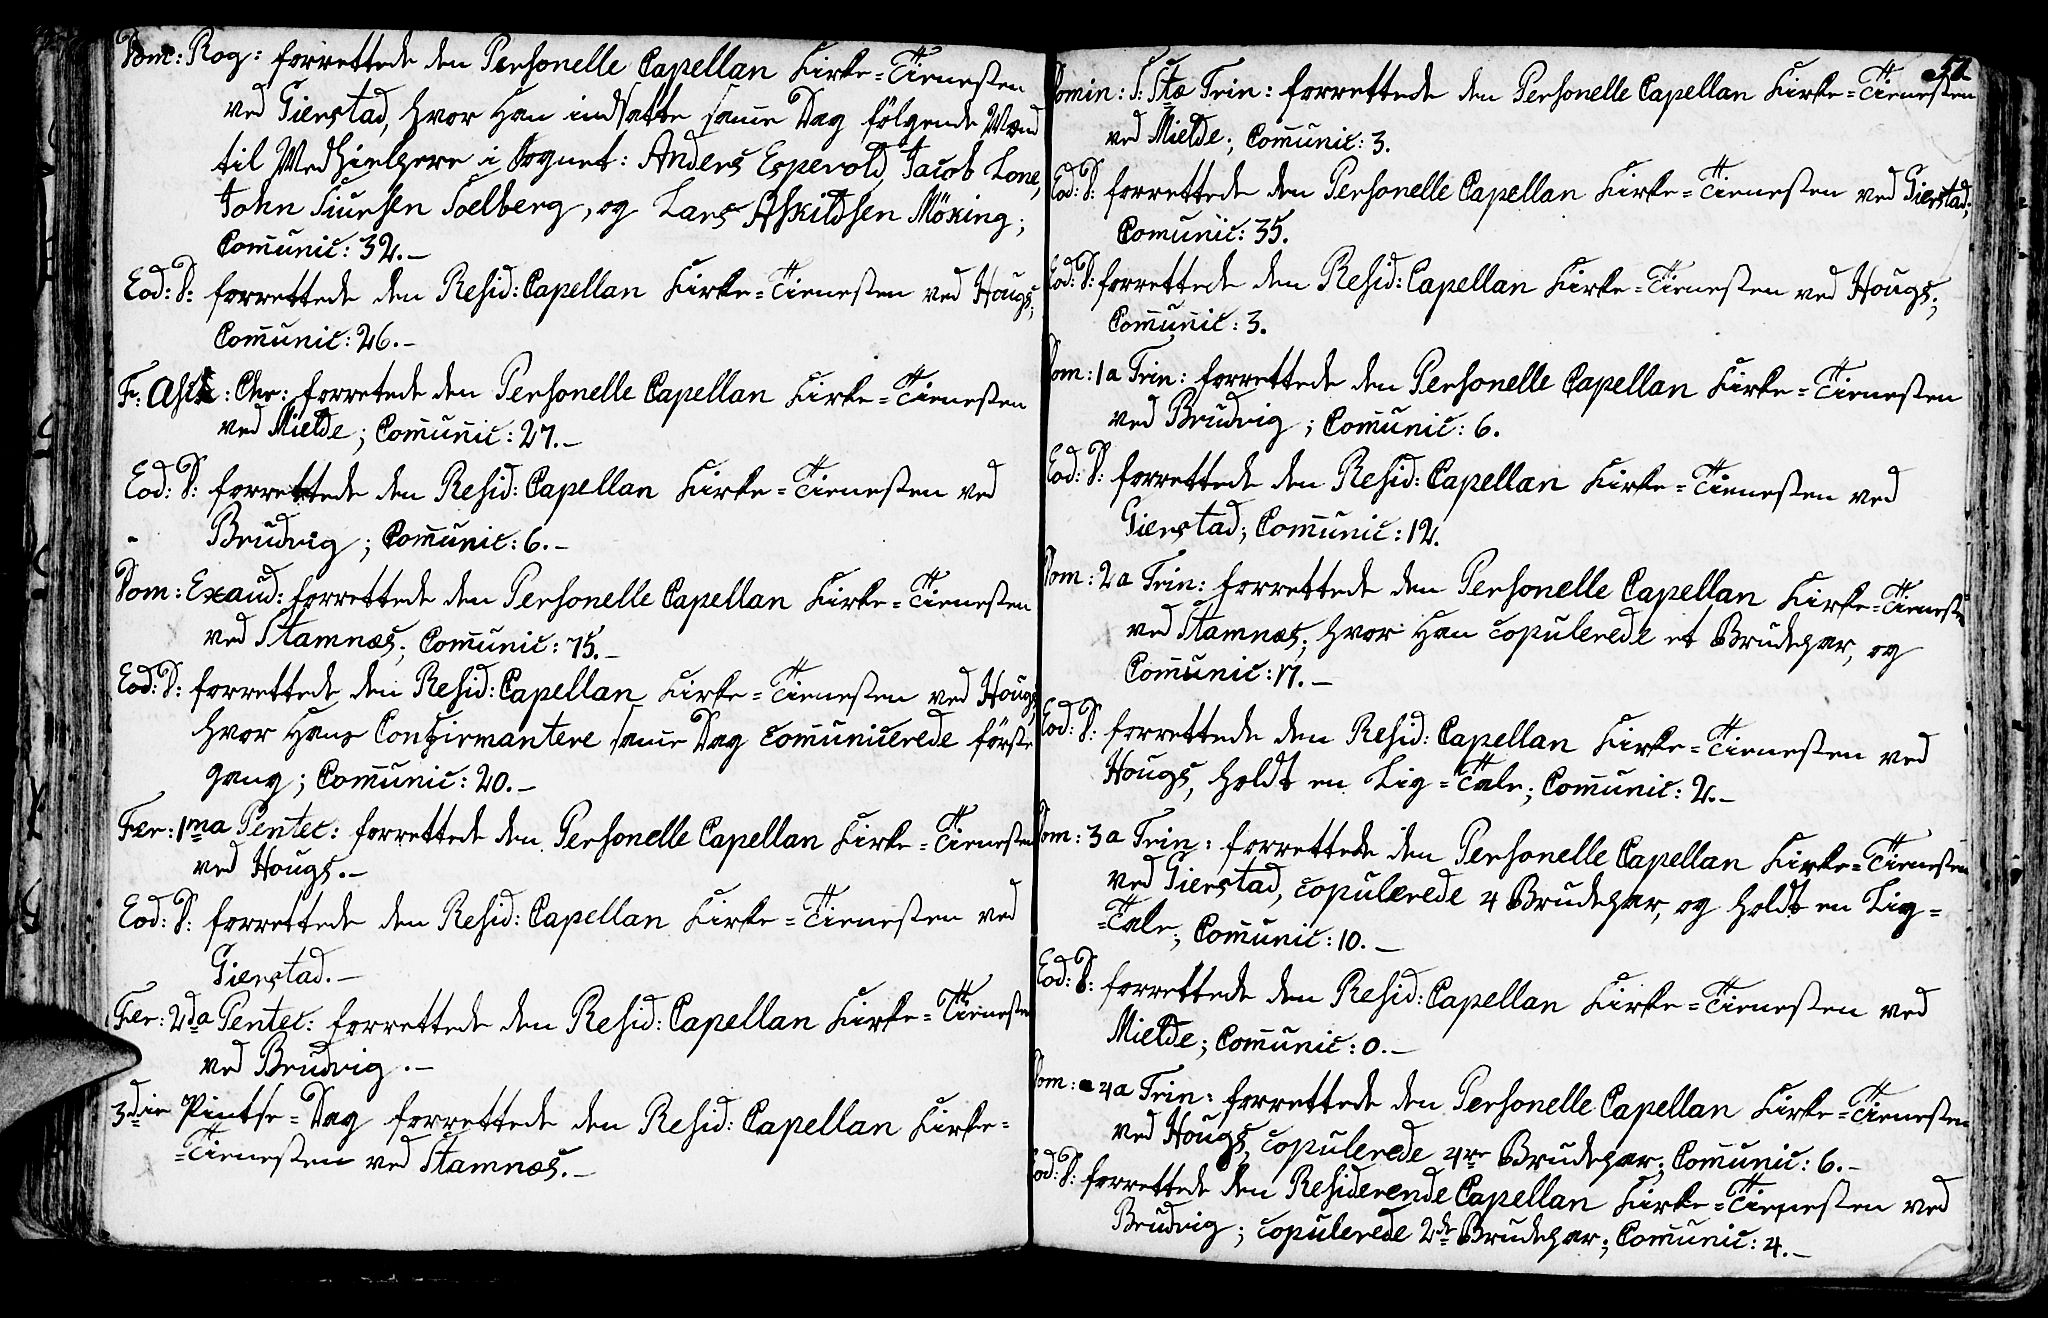 Dom: Rog: forrettede den Personelle Capellan Kirke-Tienesten
ved Gierstad, hvor Han indsatte samme Dag følgende Mænd
til Medhielpere i Sognet: Anders Espevold, Jacob Lone,
John Siursen Soelberg, og Lars Askildsen Möxing;
Com̄unic: 32.–
Eod: D: forrettede den Resid: Capellan Kirke-Tienesten ved Hougs;
Com̄unic: 26.–
F: Asc: Chr: forretede den Personelle Capellan Kirke-Tienesten
ved Mielde; Com̄unic: 27.–
Eod: D: forrettede den Resid: Capellan Kirke-Tienesten ved
Brudvig; Com̄unic: 6.–
Dom: Exaud: forrettede den Personelle Capellan Kirke-Tienesten
ved Stamnæs; Com̄unic: 75.–
Eod: D: forrettede den Resid: Capellan Kirke-Tienesten ved Hougs,
hvor Hans Confirmantere sam̄e Dag com̄unicerede förste
gang; Com̄unic: 20.–
Fer: 1ma Pentec: forrettede den Personelle Capellan Kirke-Tienesten
ved Hougs.–
Eod: D: forrettede den Resid: Capellan Kirke-Tienesten ved
Gierstad.–
Fer: 2da Pentec: forrettede den Resid: Capellan Kirke-Tienesten
ved Brudvig.–
3die Pintse-Dag forrettede den Resid: Capellan Kirke-
-Tienesten ved Stamnæs.–
52
Domin: S: Stæ Trin: forrettede den Personelle Capellan Kirke-Tienesten
ved Mielde; Com̄unic: 3.
Eod: D: forrettede den Personelle Capellan Kirke-Tienesten ved Gierstad;
Com̄unic: 35.
Eod: D: forrettede den Resid: Capellan Kirke-Tienesten ved Hougs;
Com̄unic: 3.
Dom: 1a Trin: forrettede den Personelle Capellan Kirke-Tienesten
ved Brudvig; Com̄unic: 6.
Eod: D: forrettede den Resid: Capellan Kirke-Tienesten ved
Gierstad; Com̄unic: 12.
Dom: 2a Trin: forrettede den Personelle Capellan Kirke-Tieneste
ved Stamnæs; hvor Han copulerede et Brudepar, og
Com̄unic: 17.–
Eod: D: forrettede den Resid: Capellan Kirke-Tienesten ved
Hougs, holdt en Lig-Tale; Com̄unic: 2.–
Dom: 3a Trin: forrettede den Personelle Capellan Kirke-Tienesten
ved Gierstad, copulerede 4 Brudepar, og holdt en Lig-
-Tale; Com̄unic: 10.–
Eod: D: forrettede den Resid: Capellan Kirke-Tienesten ved
Mielde; Com̄unic: 0.–
Dom: 4a Trin: forrettede den Personelle Capellan Kirke-Tienesten
ved Hougs, copulerede 4re Brudepar; Com̄unic: 6.–
Eod: D: forrettede den Residerende Capellan Kirke-Tienesten ved
Brudvig; copulerede 2de Brudepar; Com̄unic: 4.–